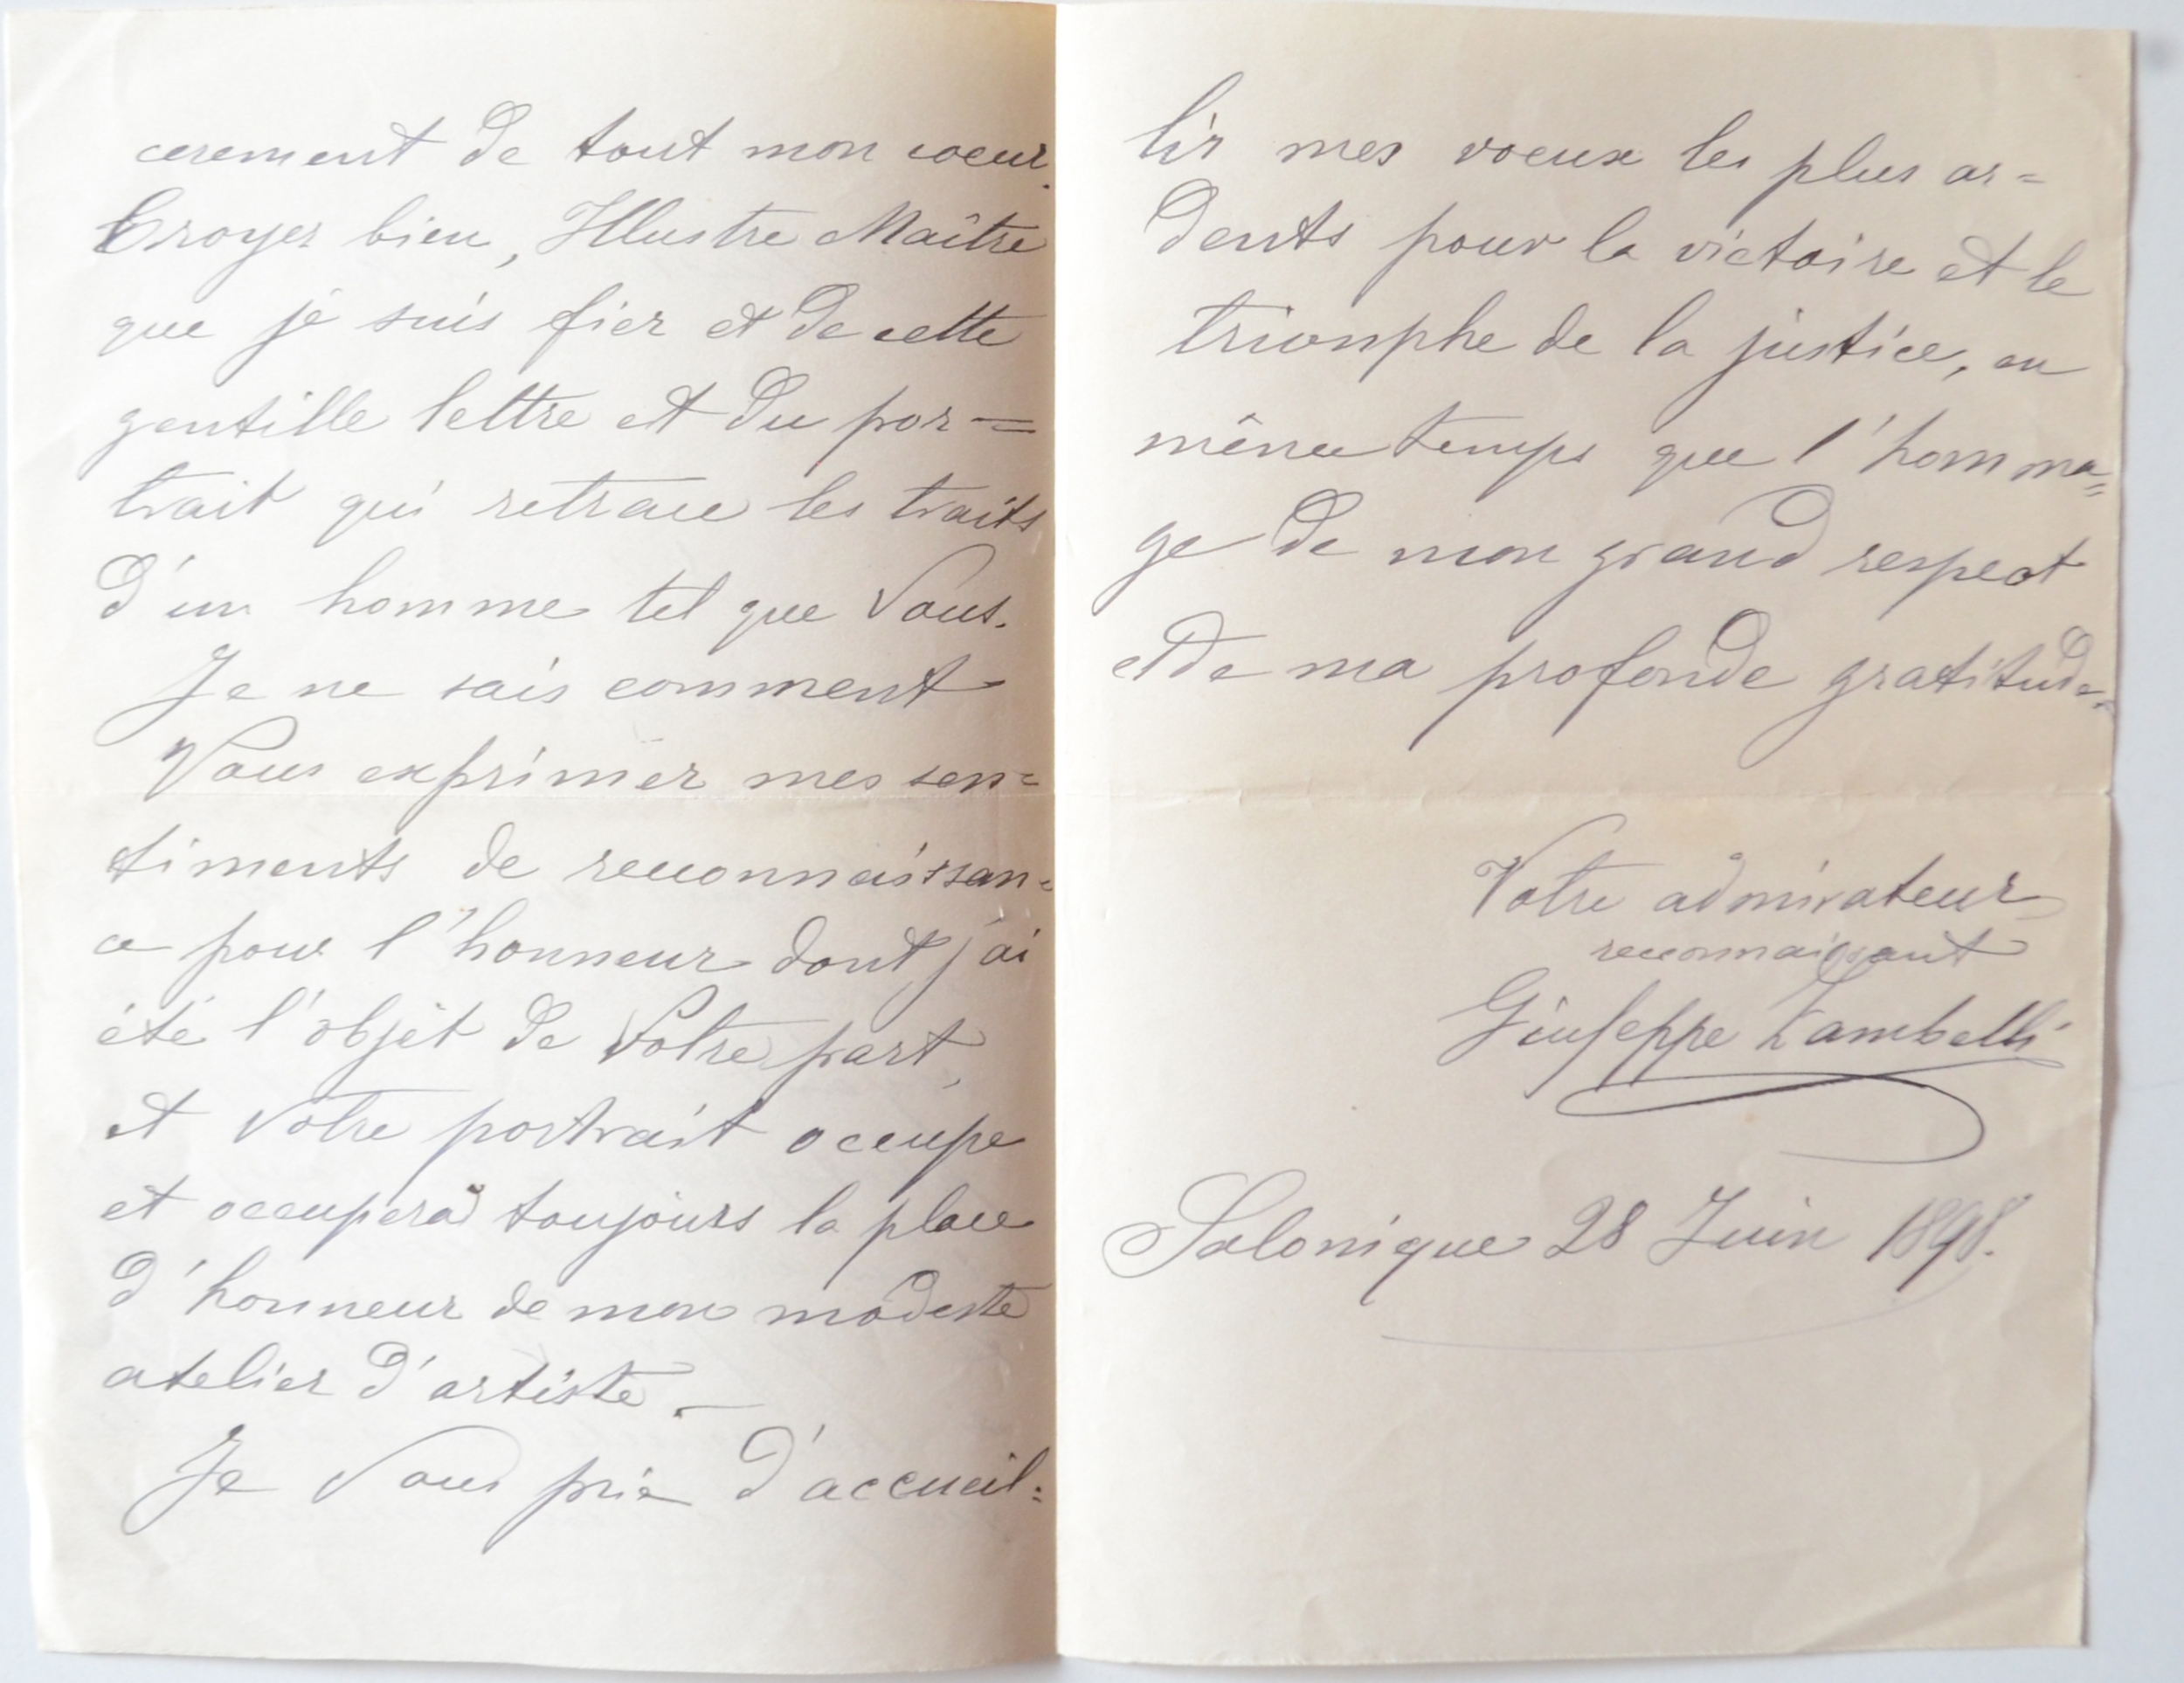 cerement de tout mon coeur.
Croyez bien, Illustre Maître
que je suis fier et de cette
gentille lettre et du por=
trait qui retrace les traits
d'un homme tel que Vous.
Je ne sais comment
Vous exprimer mes sen=
timents de reconnaissan=
ce pour l'honneur dont j'ai
été l'objèt de Votre part,
et Votre portrait occupe
et occupera toujours la place
d'honneur de mon modeste
atelier d'artiste. —
Je Vous prie d'accueil=
lir mes voeux les plus ar=
dents pour la victoire et le
trionphe de la justice, en
même temps que l'homma=
ge de mon grand respect
et de ma profonde gratitude.
Votre admirateur
reconnaissant
Giuseppe Zambelli
Salonique 28 Juin 1898.